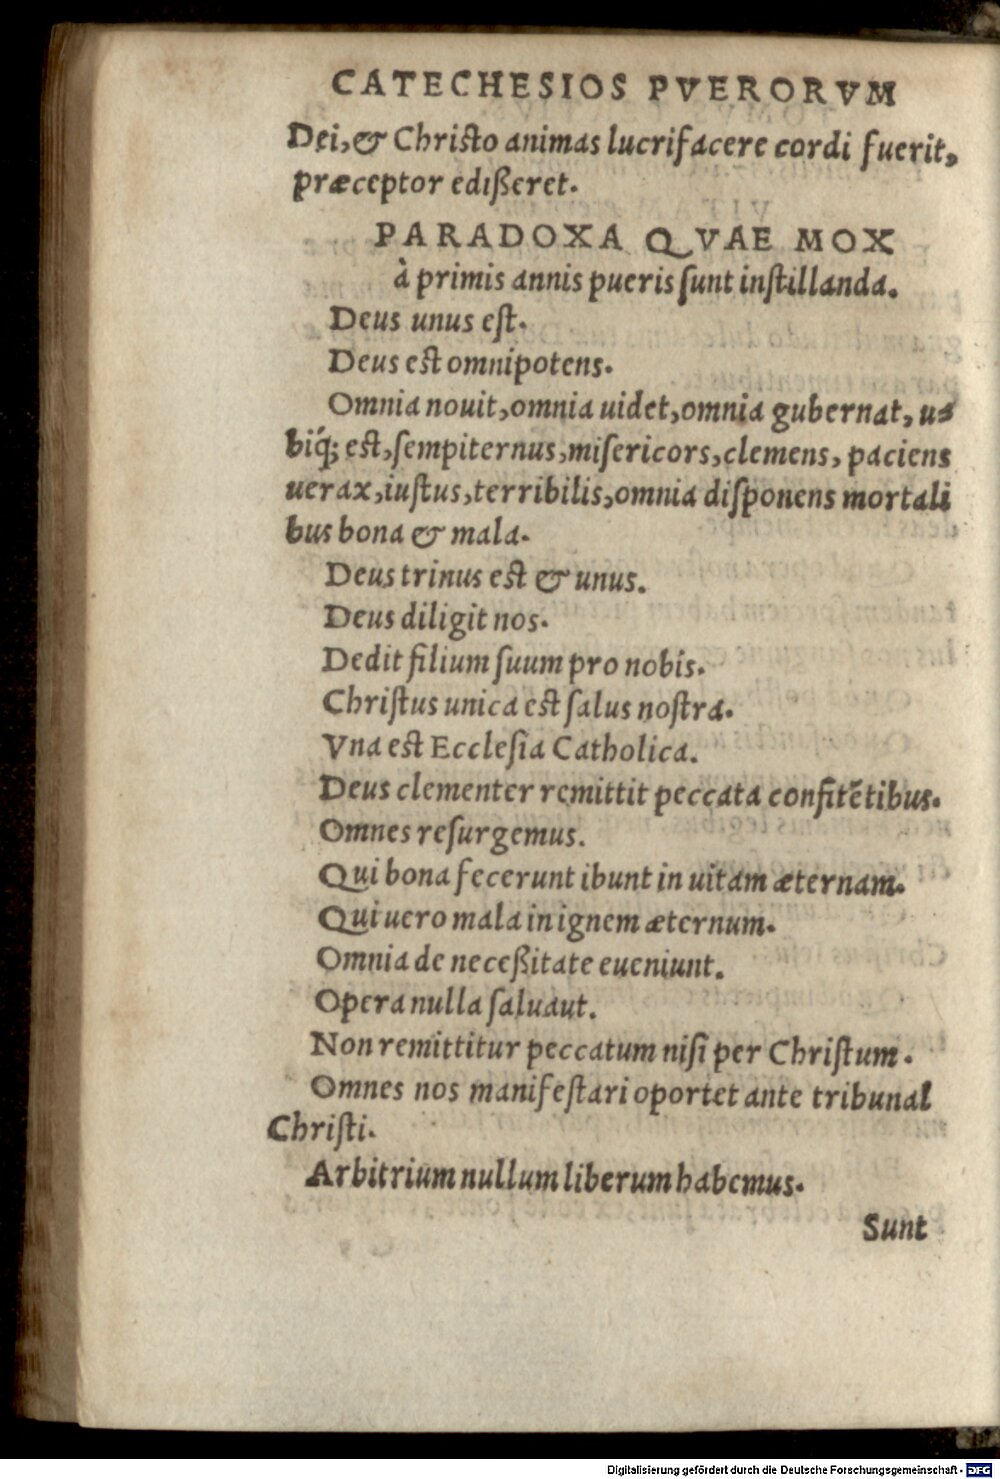 CATECHESIOS PVERORVM
Dei, & Christo animas lucrifacere cordi fuerit,
præceptor edißeret.
PARADOXA QVAE MOX
à primis annis pueris ſunt inſtillanda.
Deus unus eſt.
Deus eſt omnipotens.
Omnia nouit, omnia uidet, omnia gubernat, u⸗
biq́; eſt, ſempiternus, miſericors, clemens, paciens
uerax, iuſtus, terribilis, omnia diſponens mortali
bus bona & mala.
Deus trinus eſt & unus.
Deus diligit nos.
Dedit filium ſuum pro nobis.
Chriſtus unica eſt ſalus noſtra.
Vna eſt Eccleſia Catholica.
Deus clementer remittit peccata confitẽtibus.
Omnes reſurgemus.
Qui bona fecerunt ibunt in uitam æternam.
Qui uero mala in ignem æternum.
Omnia de neceßitate eueniunt.
Opera nulla ſaluaut.
Non remittitur peccatum niſi per Chriſtum.
Omnes nos manifeſtari oportet ante tribunal
Chriſti.
Arbitrium nullum liberum habemus.
Sunt
Digitalisierung gefördert durch die Deutsche Forschungsgemeinschaft - DFG